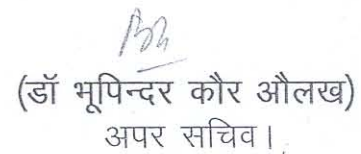 (डॉ भूपिन्दर कौर औलख)
अपर सचिव।